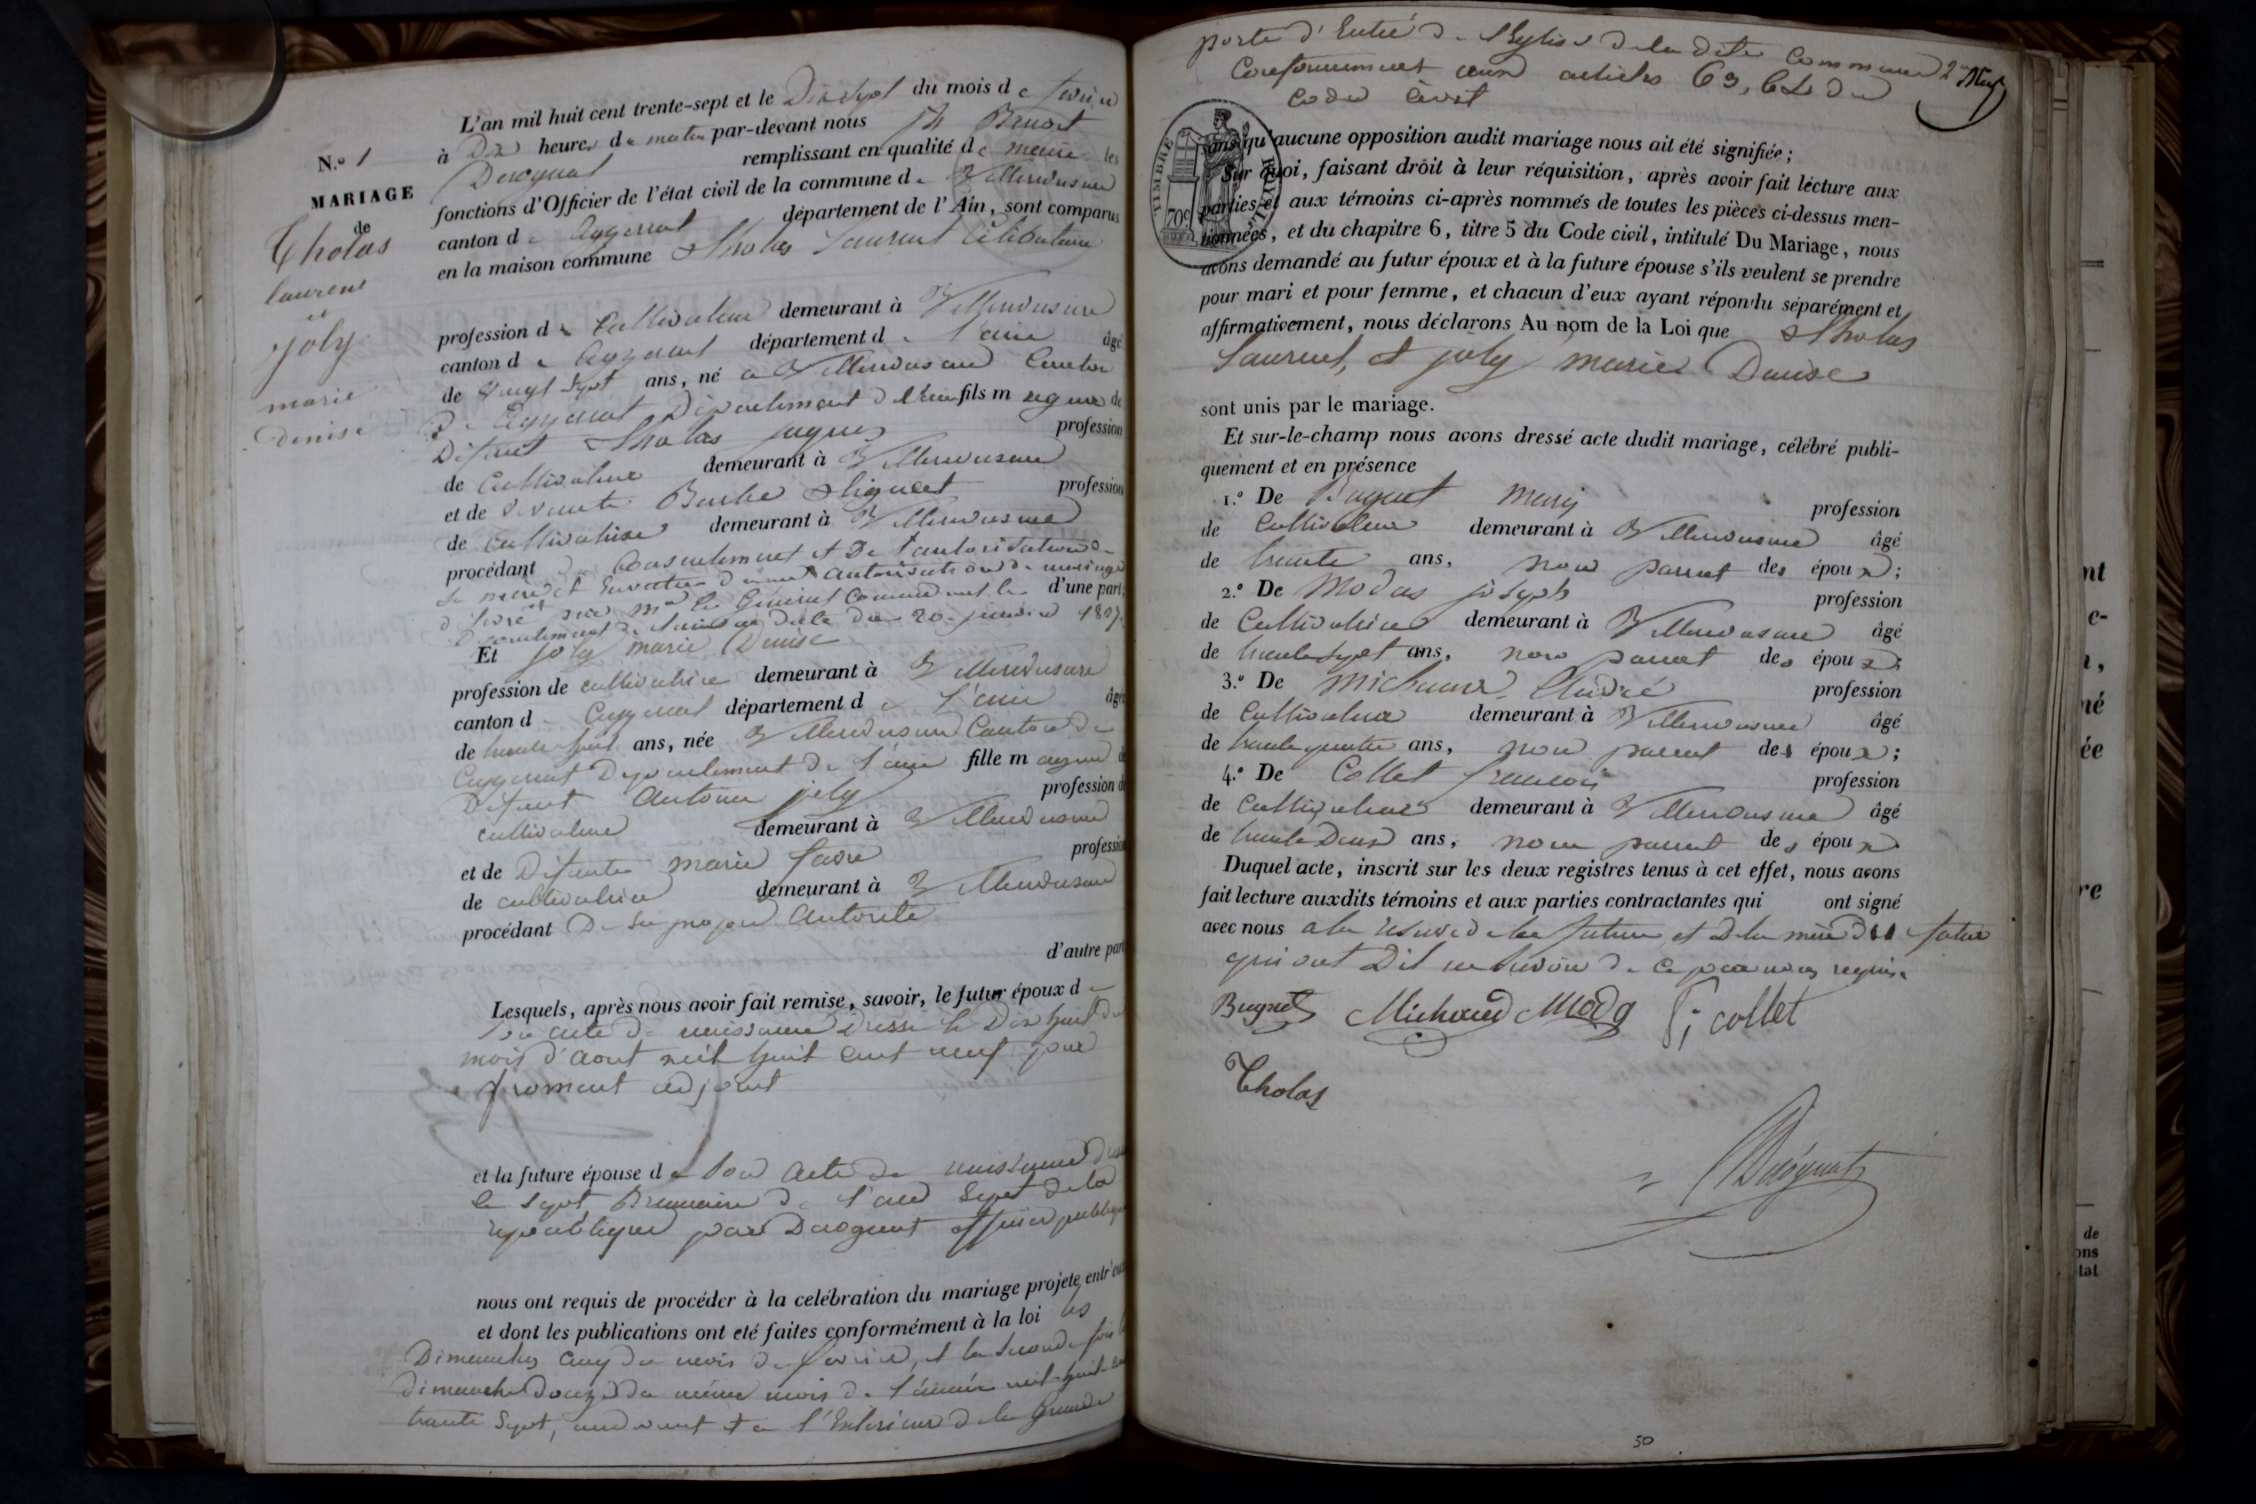 L'an mil huit cent trente-sept et le Dix Sept du mois de fevrier
N.o 1
à Dix heures du matin par-devant nous Benoit
Darognat remplissant en qualité de maire les
MARIAGE
fonctions d'Officier de l'état civil de la commune de Villereversure
de
canton de Ceyzeriat département de l'Ain, sont comparus
Tholas
en la maison commune Tholas Laurent Célibataire
laurent
et
joly
marie
denise
profession de Cultivateur demeurant à Villereversure
canton de Ceyzeriat département de l'ain âgé
de vingt Sept ans, né a Villereversure Canton
de Ceyzeriat Département de l'ain fils m ageur de
Defunt Tholas jaques profession
de Cultivateur demeurant à Villereversure
et de vivante Barbe profession
de cultivatrice demeurant à Villereversure
procédant du Consentement et De l'autorisation de
sa mere et autorisation de mariage
délivré par Mr le Général Commandant le d'une part;
Département de l'ain en date du 20 janvier 1837
Et joly marie Denise
profession de cultivatrice demeurant à Villereversure
canton de Ceyzeriat département de l'ain âgée
de trente huit ans, née Villereversure Canton de
Ceyzeriat Departement de l'ain fille m ageure de
Defunt Antoine joly profession de
cultivateur demeurant à Villereversure
et de Defunte marie favre profession
de cultivatrice demeurant à Villereversure
procédant De Sa propre Autorité
d'autre part
Lesquels, après nous avoir fait remise, savoir, le futur époux de
Son acte de naissance Dressé le Dix huit du
mois d'aout mil huit cent neuf par
froment adjoint
et la future épouse de Son Acte de naissance dressé
le Sept Brumaire de l'an Sept de la
republique par Darognat officier publique
nous ont requis de procéder à la celébration du mariage projeté entr'eux
et dont les publications ont eté faites conformément à la loi les
Dimanches cinq du mois de fevrier, et la seconde fois le
dimanche Douze du même mois de l'année mil huit cent
trente Sept, au devant et a l'Exterieur de la Grande
porte d'Entré de l'Eglise de la dite Commune 2me
Conformement aux articles 63, 64 du
Code Civil
TIMBRE ROYAL
70c
sans qu'aucune opposition audit mariage nous ait été signifiée;
Sur quoi, faisant droit à leur réquisition, après avoir fait lecture aux
parties et aux témoins ci-après nommés de toutes les pièces ci-dessus men-
tionnées, et du chapitre 6, titre 5 du Code civil, intitulé Du Mariage, nous
avons demandé au futur époux et à la future épouse s'ils veulent se prendre
pour mari et pour femme, et chacun d'eux ayant répondu séparément et
affirmativement, nous déclarons Au nom de la Loi que Tholas
Laurent, et joly marie Denise
sont unis par le mariage.
Et sur-le-champ nous avons dressé acte dudit mariage, célébré publi-
quement et en présence
1.o De Bugnet profession
de Cultivateur demeurant à Villereversure âgé
de trente ans, non parent des époux;
2.o De Modas joseph profession
de Cultivateur demeurant à Villereversure âgé
de trente Sept ans, non parent des époux;
3.o De Michaud profession
de Cultivateur demeurant à Villereversure âgé
de trente quatre ans, non parent des époux;
4.o De Collet françois profession
de Cultivateur demeurant à Villereversure âgé
de trente Deux ans, non parent des époux
Duquel acte, inscrit sur les deux registres tenus à cet effet, nous avons
fait lecture auxdits témoins et aux parties contractantes qui ont signé
avec nous a la reserve de la future et De la mère du futur
qui ont Dit ne savoir de ce par nous requis.
Bugnet Michaud Moda f; collet
Tholas
Darognat
50
nt
e-
né
ée
re
de
ons
tat